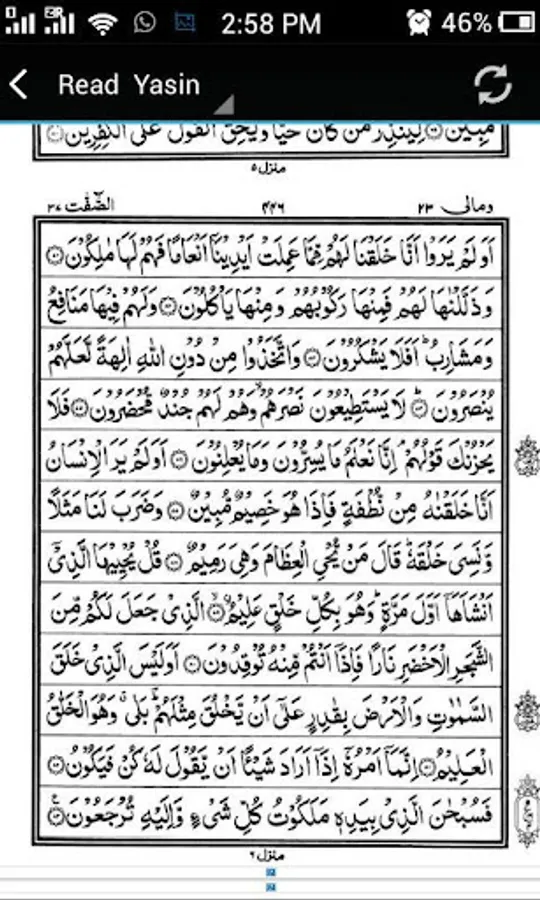 2:58 PM 46%
Read Yasin
مُّبِيْنٌ لِّيُنْذِرَ مَنْ كَانَ حَيًّا وَّيَحِقَّ الْقَوْلُ عَلَى الْكٰفِرِيْنَ
منزل ٥
ومالى ٢٣ ٤٤٦ الصّٰٓفّٰت ٣٧
اَوَلَمْ يَرَوْا اَنَّا خَلَقْنَا لَهُمْ مِّمَّا عَمِلَتْ اَيْدِيْنَاۤ اَنْعَامًا فَهُمْ لَهَا مٰلِكُوْنَ
وَذَلَّلْنٰهَا لَهُمْ فَمِنْهَا رَكُوْبُهُمْ وَمِنْهَا يَاْكُلُوْنَ وَلَهُمْ فِيْهَا مَنَافِعُ
وَمَشَارِبُ ؕ اَفَلَا يَشْكُرُوْنَ وَاتَّخَذُوْا مِنْ دُوْنِ اللّٰهِ اٰلِهَةً لَّعَلَّهُمْ
يُنْصَرُوْنَ لَا يَسْتَطِيْعُوْنَ نَصْرَهُمْ ۙ وَهُمْ لَهُمْ جُنْدٌ مُّحْضَرُوْنَ فَلَا
يَحْزُنْكَ قَوْلُهُمْ ۘ اِنَّا نَعْلَمُ مَا يُسِرُّوْنَ وَمَا يُعْلِنُوْنَ اَوَلَمْ يَرَ الْاِنْسَانُ
اَنَّا خَلَقْنٰهُ مِنْ نُّطْفَةٍ فَاِذَا هُوَ خَصِيْمٌ مُّبِيْنٌ وَضَرَبَ لَنَا مَثَلًا
وَّنَسِىَ خَلْقَهٗ ؕ قَالَ مَنْ يُّحْىِ الْعِظَامَ وَهِىَ رَمِيْمٌ قُلْ يُحْيِيْهَا الَّذِىْۤ
اَنْشَاَهَاۤ اَوَّلَ مَرَّةٍ ؕ وَهُوَ بِكُلِّ خَلْقٍ عَلِيْمٌ ۙ الَّذِىْ جَعَلَ لَكُمْ مِّنَ
الشَّجَرِ الْاَخْضَرِ نَارًا فَاِذَاۤ اَنْتُمْ مِّنْهُ تُوْقِدُوْنَ اَوَلَيْسَ الَّذِىْ خَلَقَ
السَّمٰوٰتِ وَالْاَرْضَ بِقٰدِرٍ عَلٰۤى اَنْ يَّخْلُقَ مِثْلَهُمْ ؔ بَلٰى ۚ وَهُوَ الْخَلّٰقُ
الْعَلِيْمُ اِنَّمَاۤ اَمْرُهٗۤ اِذَاۤ اَرَادَ شَيْئًا اَنْ يَّقُوْلَ لَهٗ كُنْ فَيَكُوْنُ
فَسُبْحٰنَ الَّذِىْ بِيَدِهٖ مَلَكُوْتُ كُلِّ شَىْءٍ وَّاِلَيْهِ تُرْجَعُوْنَ
منزل ٦